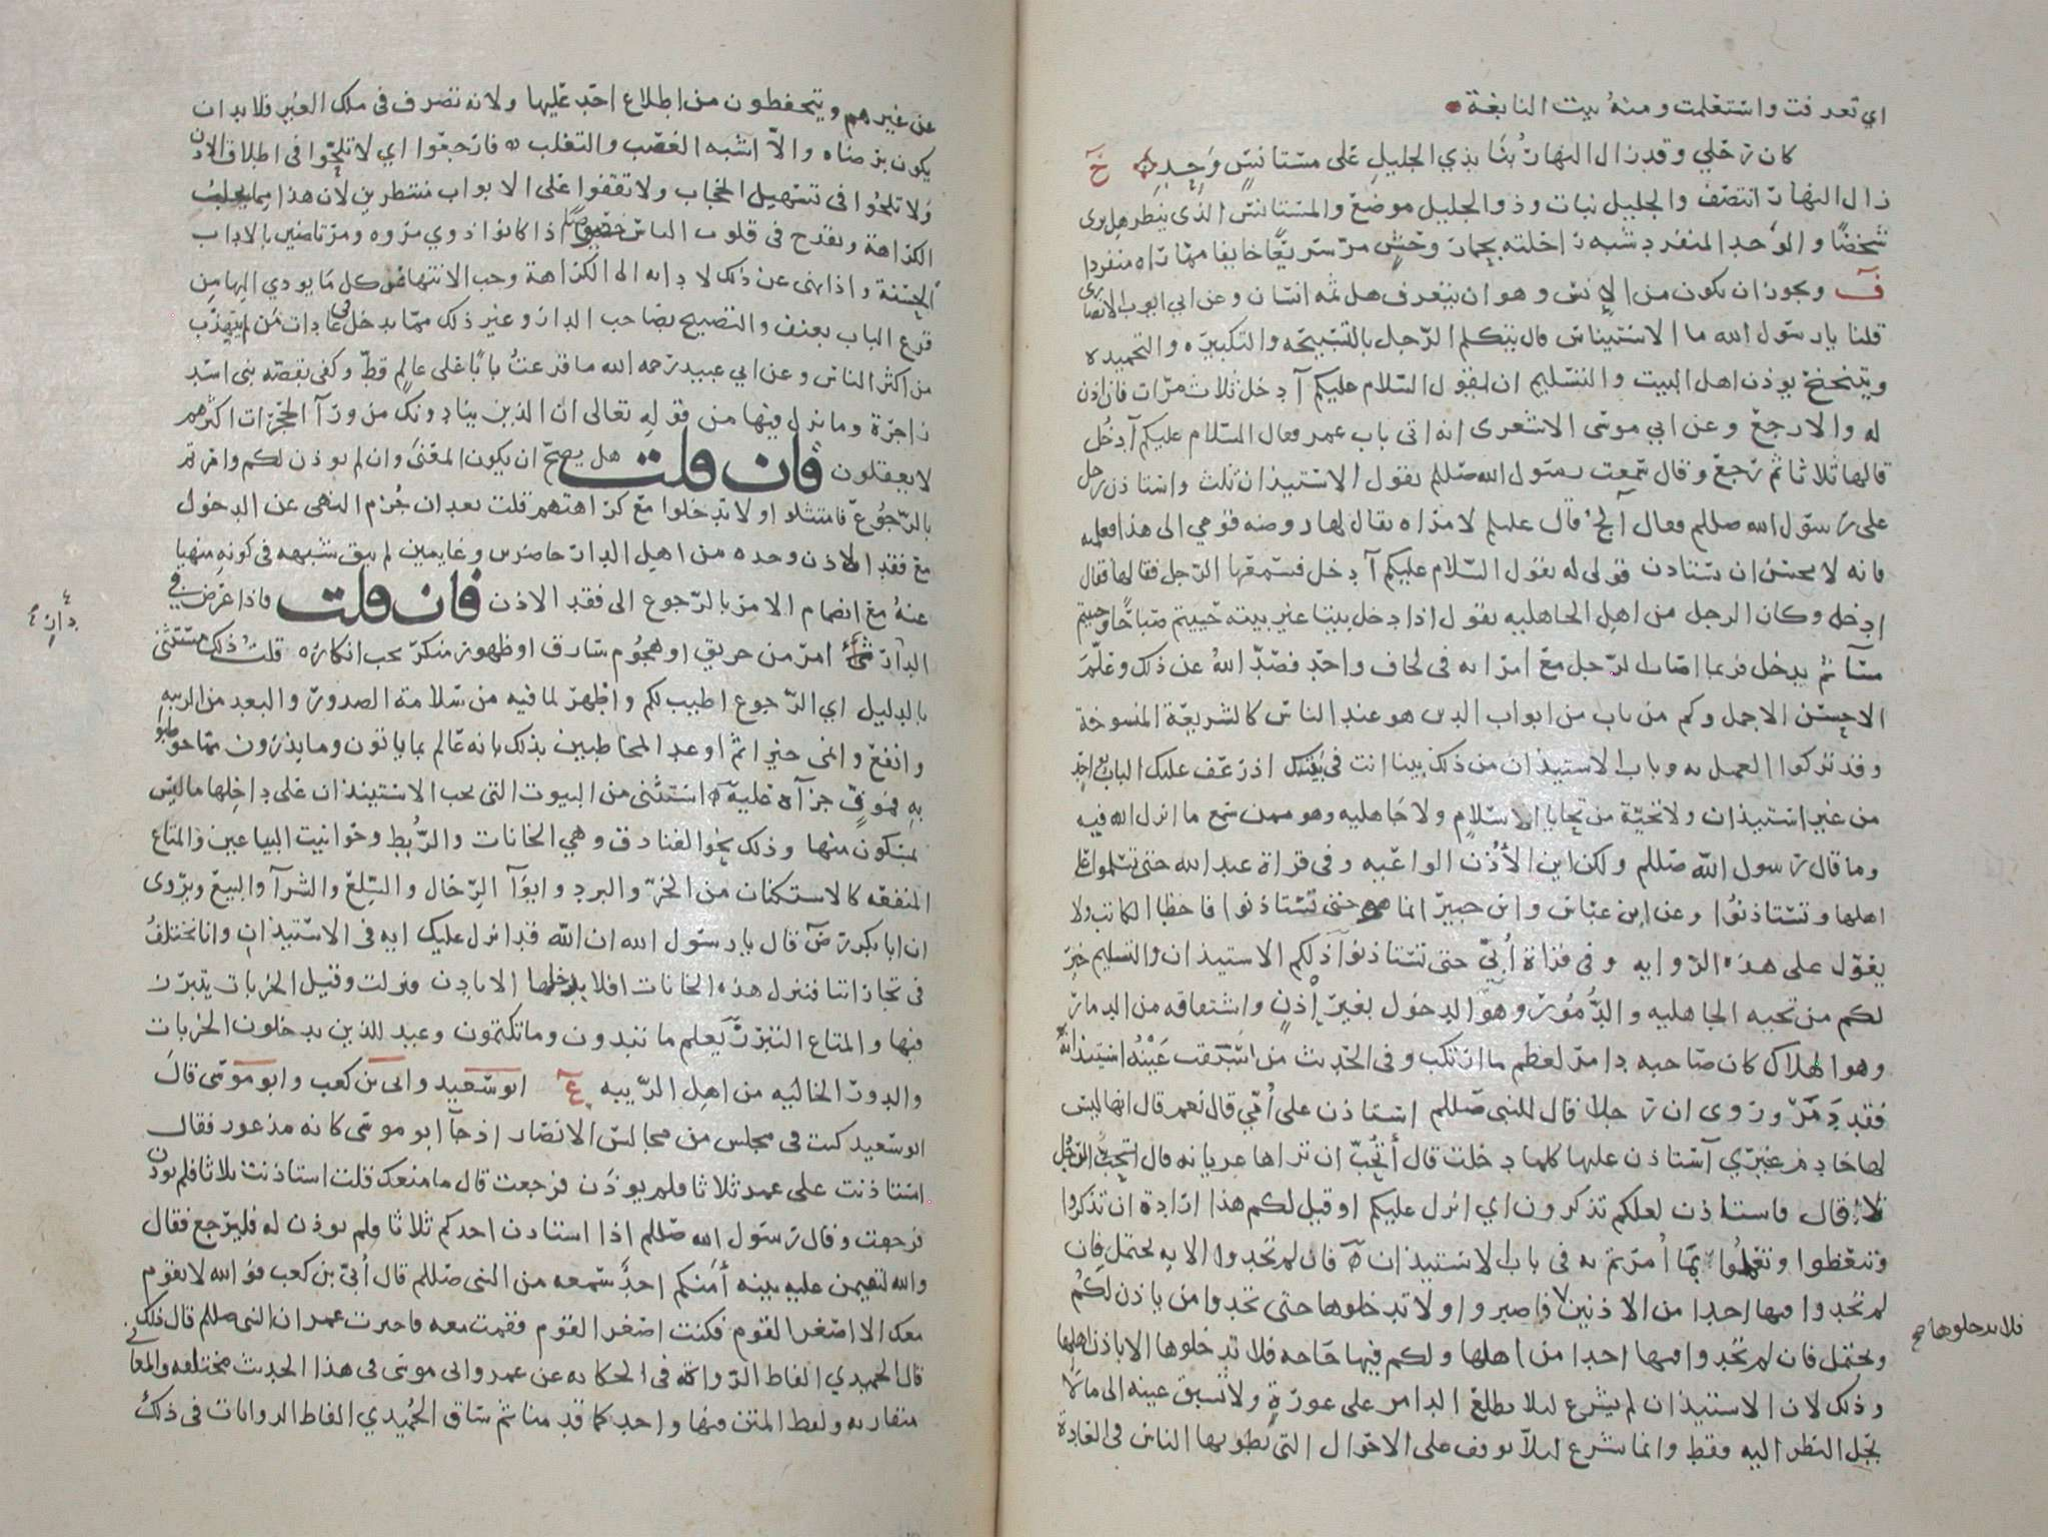 اي تعرفت واستعلمت ومنه بيت النابغة
كان رحلي وقد زال النهار بنا بذي الجليل على مستانس وحد خ
زال النهار انتصف والجليل نبات وذو الجليل موضع والمستانس الذي ينظر هل يرى
شخصا والوحد المنفرد شبه راحلته بحمار وحش مر سريعا خايفا مما راه منفردا
ف ويجوز ان يكون من الانس وهو ان يتعرف هل ثمه انسان وعن ابي ايوب الانصاري
قلنا يارسول الله ما الاستيناس قال يتكلم الرجل بالتسبيحه والتكبيره والتحميده
ويتنحنح يوذن اهل البيت والتسليم ان يقول السلام عليكم آدخل ثلاث مرات فان اذن
له والا رجع وعن ابي موسى الاشعري انه اتى باب عمر فقال السلام عليكم آدخل
قالها ثلاثا ثم رجع وقال سمعت رسول الله صللم يقول الاستيذان ثلث واستاذن رجل
على رسول الله صللم فقال آلج قال عليلم لامراه يقال لها روضه قومي الى هذا فعلميه
فانه لا يحسن ان يستاذن قولي له يقول السلام عليكم آدخل فسمعها الرجل فقالها فقال
ادخل وكان الرجل من اهل الجاهليه يقول اذا دخل بيتا غير بيته حييتم صباحا وحييتم
مسآ ثم يدخل فربما اصاب الرجل مع امراته في لحاف واحد فصد الله عن ذلك وعلم
الاحسن الاجمل وكم من باب من ابواب الدين هو عند الناس كالشريعة المنسوخة
وقد تركوا العمل به وباب الاستيذان من ذلك بينا انت في بيتك اذ رعف عليك الباب واحد
من غير استيذان ولا تحية من تحايا الاسلام ولا جاهليه وهو ممن سمع ما انزل الله فيه
وما قال رسول الله صللم ولكن اين الأذن الواعيه وفي قراة عبد الله حتى تسلموا على
اهلها وتستاذنوا وعن ابن عباس وابن جبير انما هو حتى تستاذنوا فاخطا الكاتب ولا
يعول على هذه الروايه وفي قراة أبي حتى تستاذنوا ذلكم الاستيذان والتسليم خير
لكم من تحيه الجاهليه والدمور وهو الدخول بغير إذن واشتقاقه من الدمار
وهو الهلاك كان صاحبه دامر لعظم ما ارتكب وفي الحديث من سبقت عينه استيذانه
فقد دمر وروى ان رجلا قال للنبي صللم استاذن على أمي قال نعم قال انها ليس
لها خادم غيري آستاذن عليها كلما دخلت قال أتحب ان تراها عريانه قال الرجل
لا قال فاستاذن لعلكم تذكرون اي انزل عليكم او قيل لكم هذا ارادة ان تذكروا
وتتعظوا وتعملوا بما أمرتم به في باب الاستيذان فان لم تجدوا الايه يحتمل فان
لم تجدوا فيها احدا من الاذنين فاصبروا ولا تدخلوها حتى تجدوا من ياذن لكم
فلا تدخلوها صح
ويحتمل فان لم تجدوا فيها احدا من اهلها ولكم فيها حاجه فلا تدخلوها الا باذن اهلها
وذلك لان الاستيذان لم يشرع ليلا يطلع الدامر على عورة ولا تسبق عينه الى مالا
يحل النظر اليه فقط وانما شرع ليلا يوقف على الاحوال التي يطويها الناس في العادة
عن غيرهم ويتحفظون من اطلاع احد عليها ولانه تصرف في ملك الغير فلا بد ان
يكون برضاه والا اشبه الغصب والتغلب فارجعوا اي لا تلحوا في اطلاق الاذن
ولا تلحوا في تسهيل الحجاب ولا تقفوا على الابواب منتظرين لان هذا مما يجلب
الكراهة ويقدح في قلوب الناس خصوصا اذا كانوا ذوي مروه ومرتاضين بالاداب
الحسنة واذا نهى عن ذلك لادائه الى الكراهة وجب الانتها عن كل ما يودي اليها من
قرع الباب بعنف والتصييح بصاحب الدار وغير ذلك مما يدخل في عادات من لم يتهذب
من اكثر الناس وعن ابي عبيد رحمه الله ما قرعت بابا على عالم قط وكفى بقصه بني اسد
زاجرة وما نزل فيها من قوله تعالى ان الذين ينادونك من ورآ الحجرات اكثرهم
لا يعقلون فان قلت هل يصح ان يكون المعنى وان لم يوذن لكم وامرتم
بالرجوع فامتثلوا ولا تدخلوا مع كراهتهم قلت بعد ان جزم النهي عن الدخول
مع فقد الاذن وحده من اهل الدار حاضرين وغايبين لم يبق شبهه في كونه منهيا
عنه مع انضمام الامر بالرجوع الى فقد الاذن فان قلت فاذا عرض في
الدار امر من حريق او هجوم سارق او ظهور منكر يجب انكاره قلت ذلك مستثنى
بالدليل اي الرجوع اطيب لكم واظهر لما فيه من سلامة الصدور والبعد من الريبه
وانفع وانمى خيرا ثم اوعد المخاطبين بذلك بانه عالم بما ياتون وما يذرون مما خوطبوا
به فموف جزآه عليه استثنى من البيوت التي يجب الاستيذان على داخلها ماليس
بمسكون منها وذلك نحو الفنادق وهي الخانات والربط وحوانيت البياعين والمتاع
المنفعه كالاستكنان من الحر والبرد وايوآ الرحال والسلع والشرآ والبيع ويروى
ان ابا بكر رض قال يارسول الله ان الله قد انزل عليك ايه في الاستيذان وانا نختلف
في تجاراتنا فننزل هذه الخانات افلا ندخلها الا باذن فنزلت وقيل الخربات يتبرز
فيها والمتاع التبرز يعلم ما تبدون وما تكتمون وعيد للذين يدخلون الخربات
والدور الخاليه من اهل الريبه ابو سعيد وابي بن كعب وابو موسى قال
ابو سعيد كنت في مجلس من مجالس الانصار اذ جآ ابو موسى كانه مذعور فقال
استاذنت على عمر ثلاثا فلم يوذن فرجعت قال ما منعك قلت استاذنت ثلاثا فلم يوذن
فرجعت وقال رسول الله صللم اذا استاذن احدكم ثلاثا فلم يوذن له فليرجع فقال
والله لتقيمن عليه بينه أمنكم احد سمعه من النبي صللم قال أبي بن كعب فو الله لا يقوم
معك الا اصغر القوم فكنت اصغر القوم فقمت معه فاخبرت عمر ان النبي صللم قال ذلك
قال الحميدي الفاظ الرواة في الحكايه عن عمر وابي موسى في هذا الحديث مختلفه والمعاني
متقاربه ولفظ المتن فيها واحد كما قدمنا ثم ساق الحميدي الفاظ الروايات في ذلك